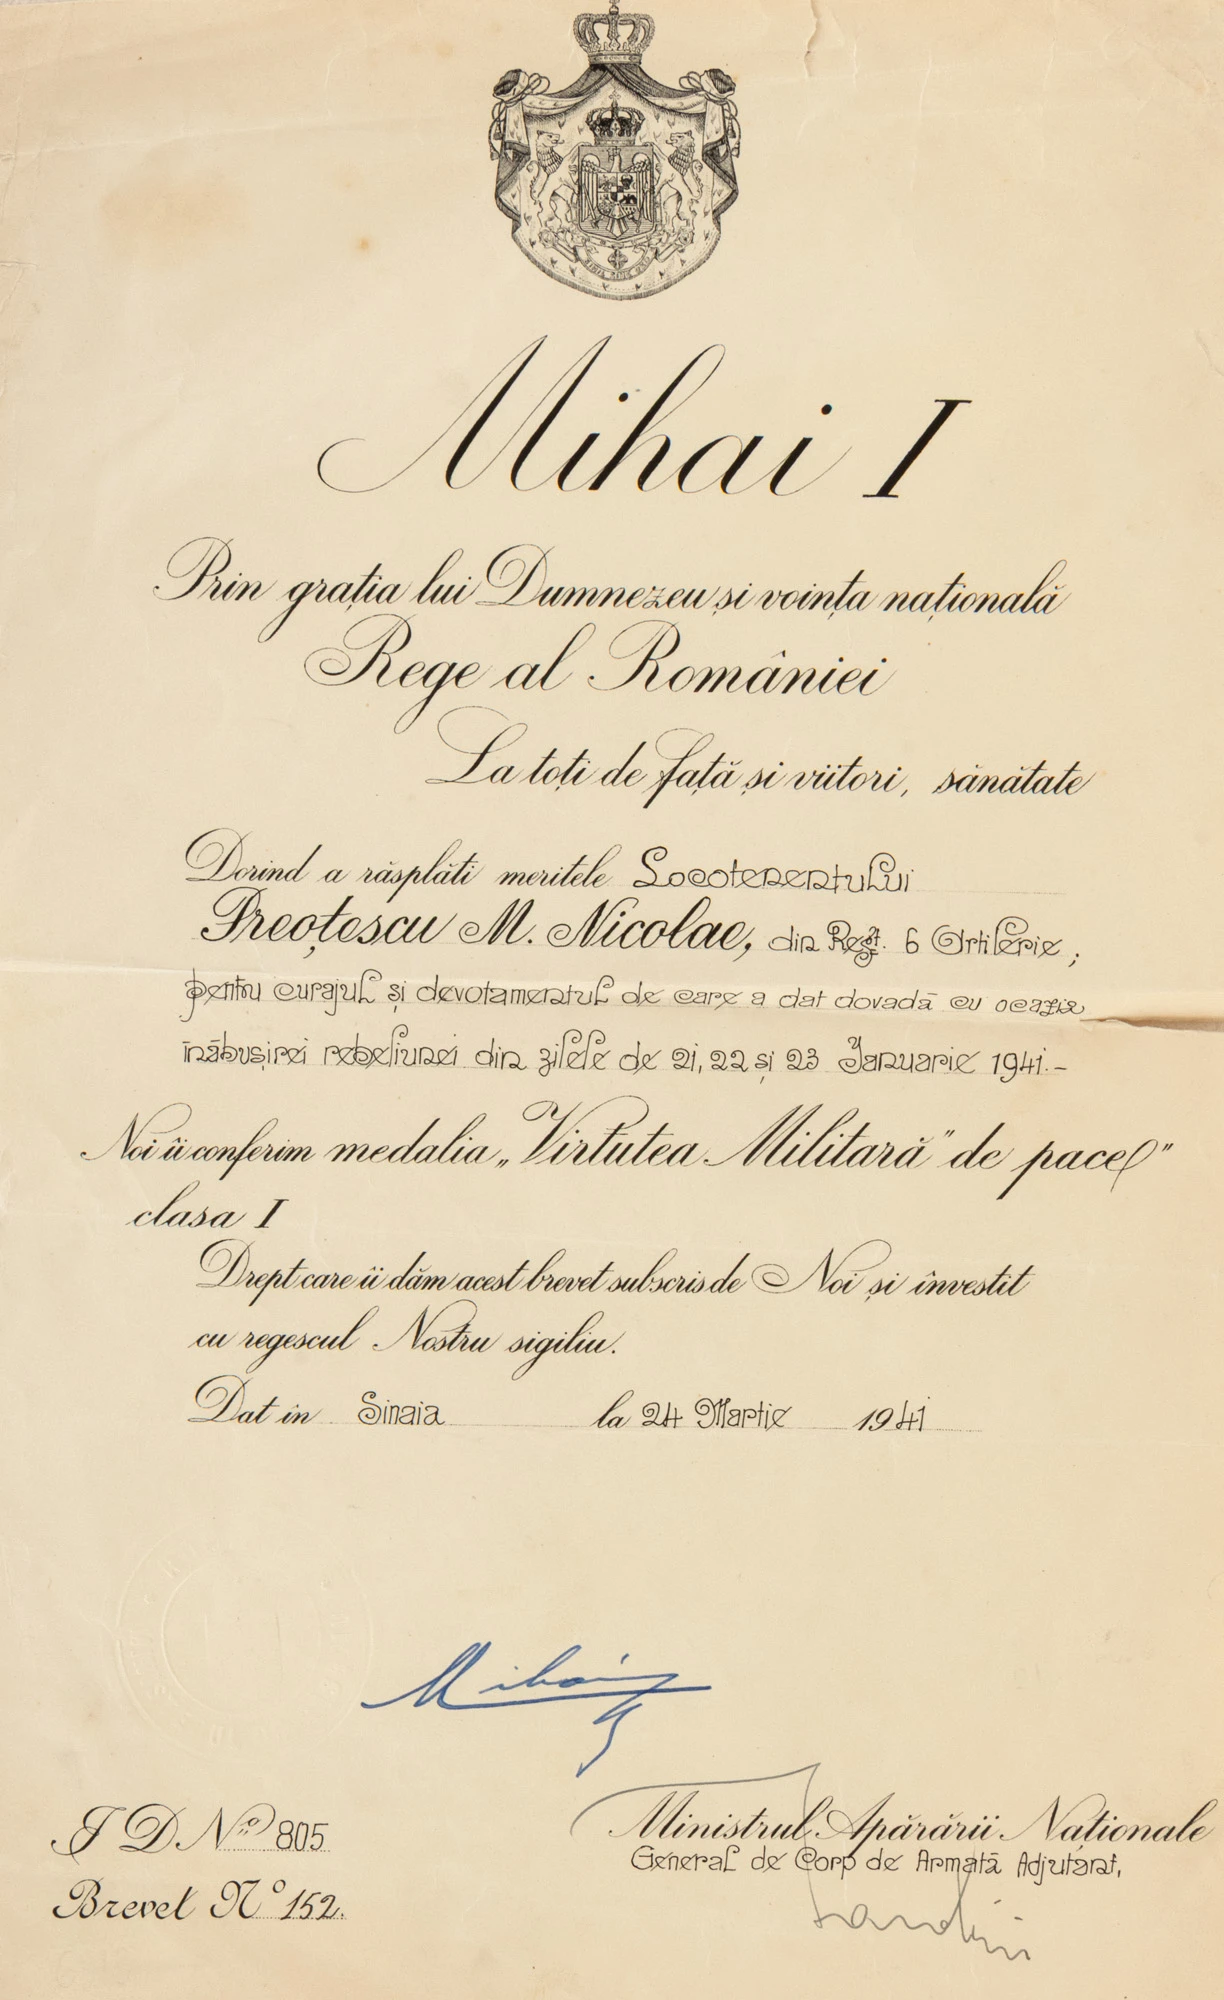 NIHIL SINE DEO
Mihai I
Prin grația lui Dumnezeu și voința națională
Rege al României
La toți de față și viitori, sănătate
Dorind a răsplăti meritele Locotenentului
Preoțescu M. Nicolae, din Regt. 6 Artilerie ;
pentru curajul și devotamentul de care a dat dovadă cu ocazia
înăbușirei rebeliunei din zilele de 21, 22 și 23 Ianuarie 1941.-
Noi îi conferim medalia „Virtutea Militară" de pace"
clasa I
Drept care îi dăm acest brevet subscris de Noi și învestit
cu regescul Nostru sigiliu.
Dat în Sinaia la 24 Martie 1941
Mihai
I D No 805
Ministrul Apărării Naționale
General de Corp de Armată Adjutant,
Brevet No 152.